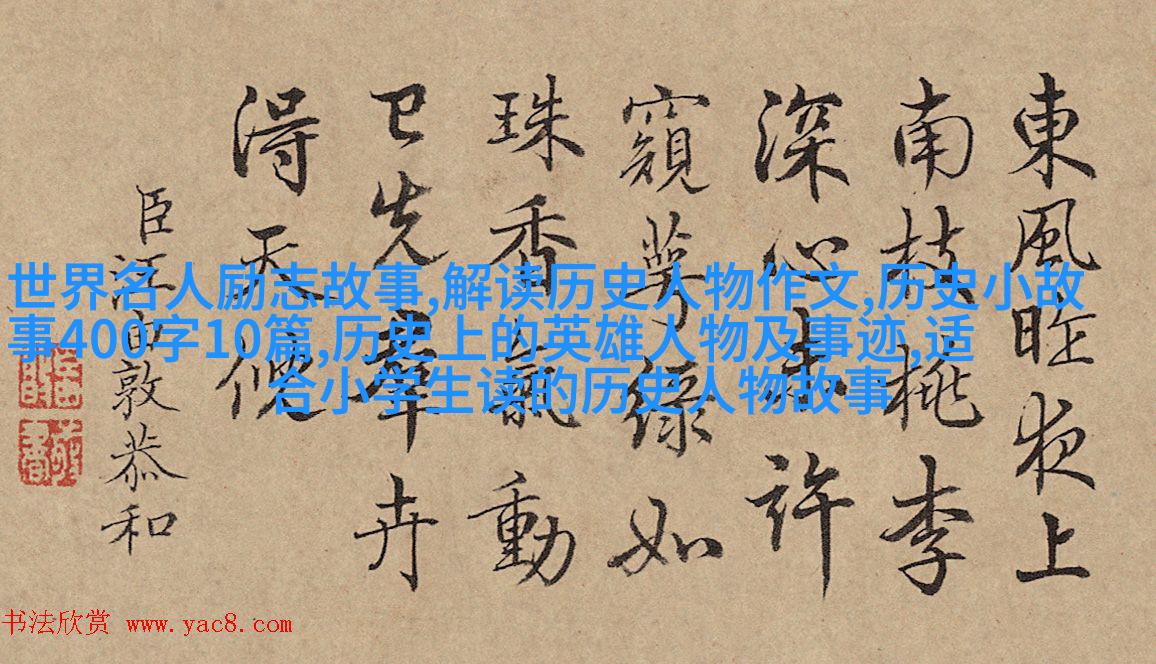 東風昨夜上
南枝桃李
深心未許
窺萼綠如
珠香氣動
已先羣卉
得天
臣汪由敦恭和
世界名人励志故事,解读历史人物作文,历史小故
事400字10篇,历史上的英雄人物及事迹,适
合小学生读的历史人物故事
书法欣赏 www.yac8.com